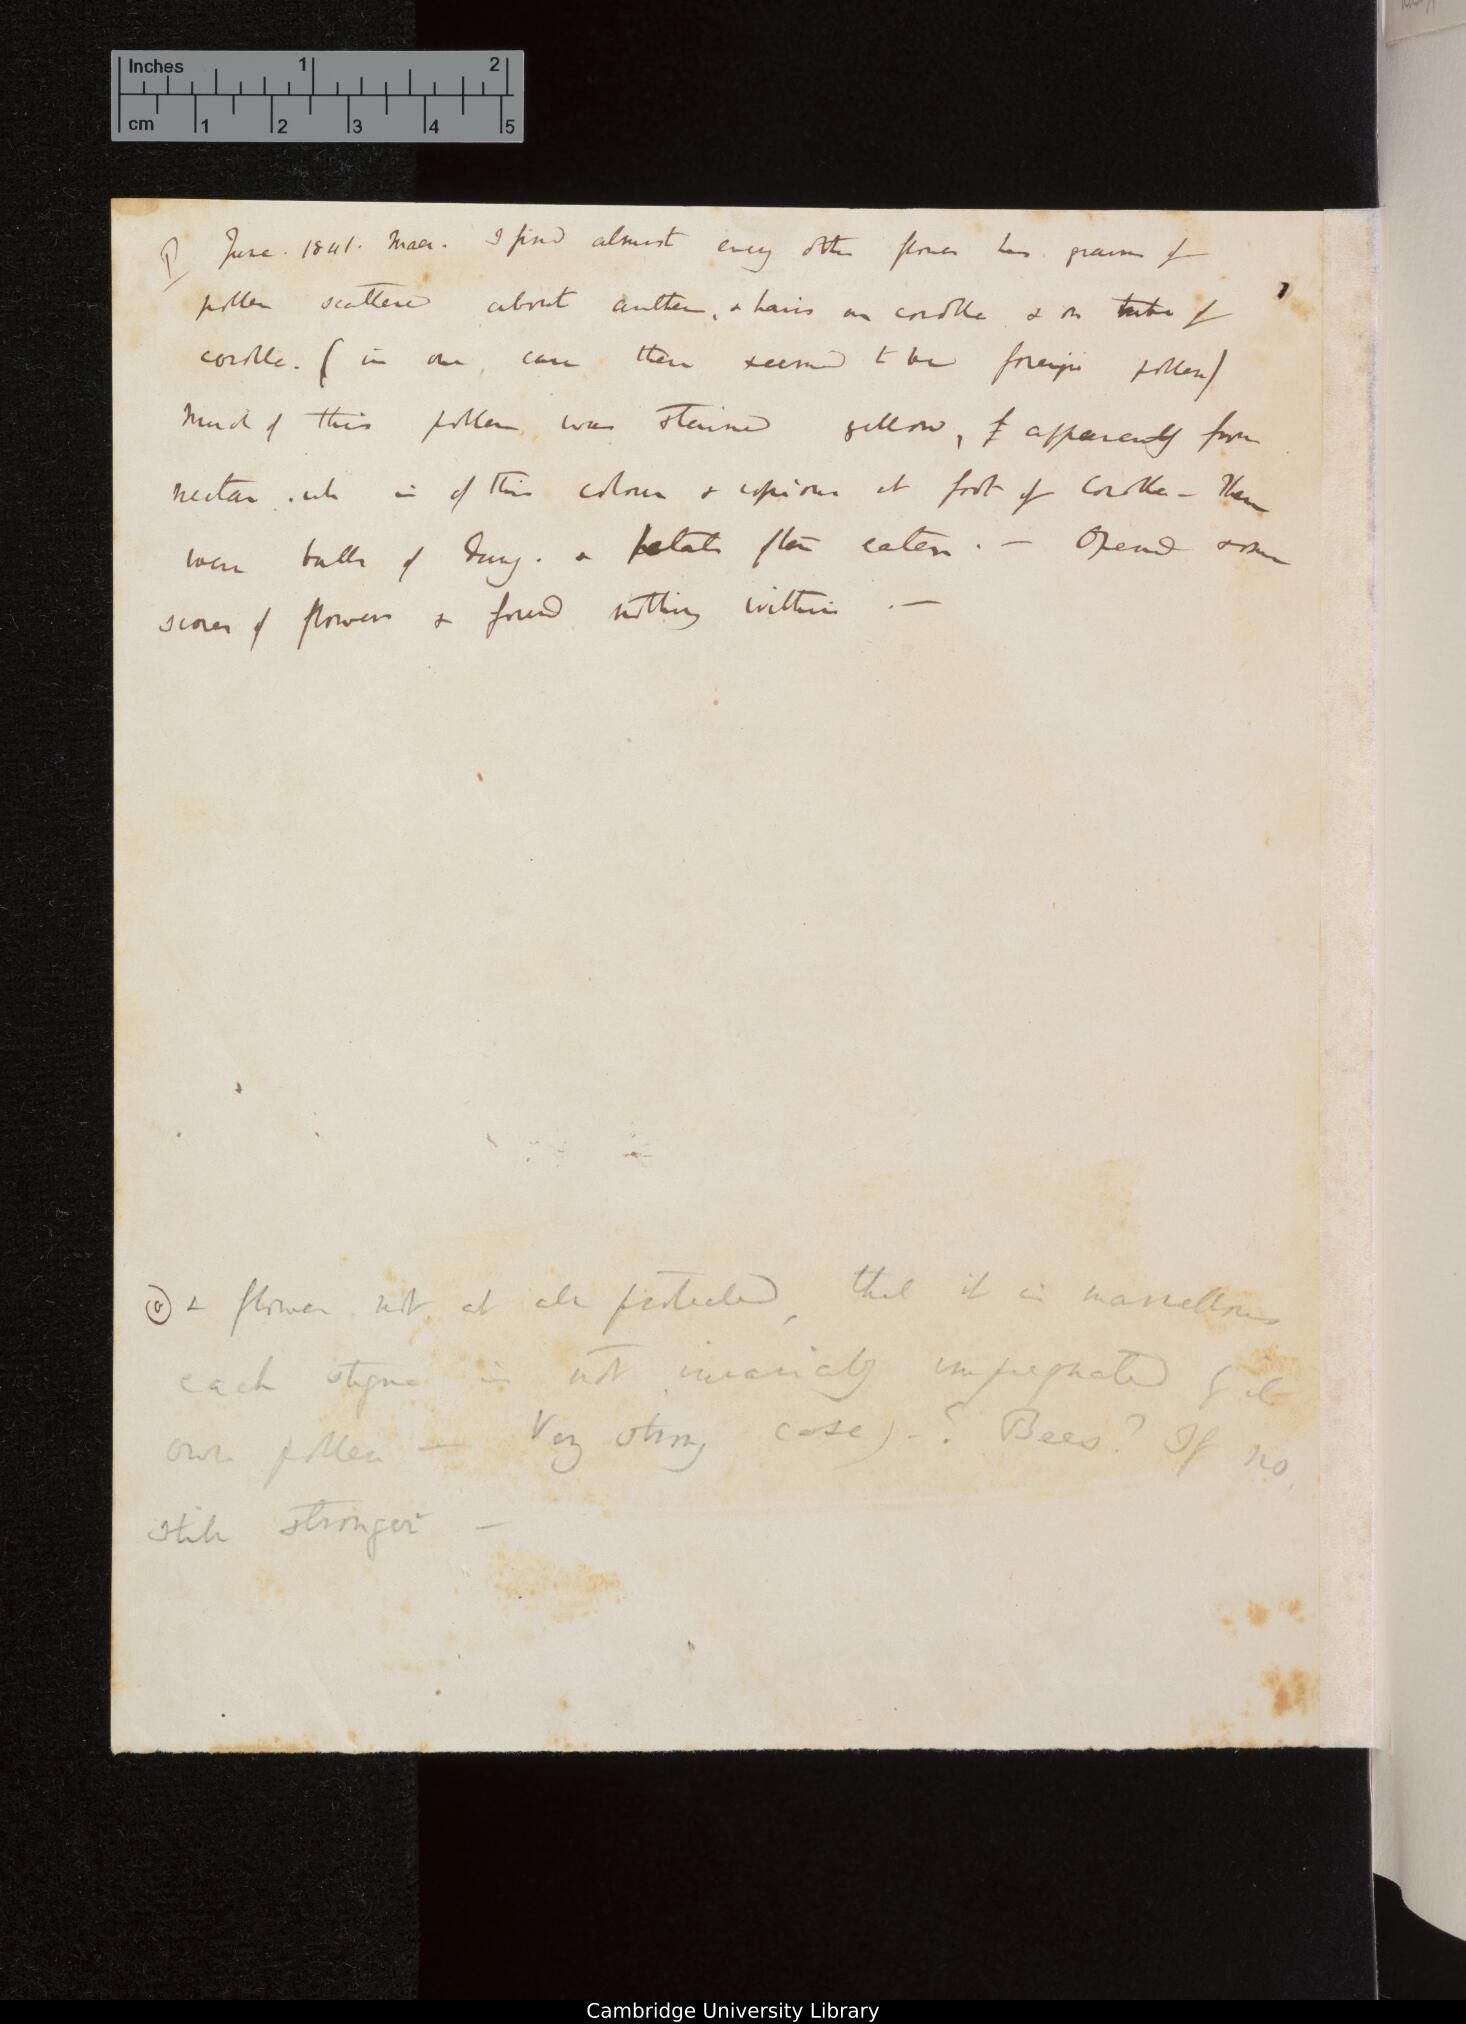 Inches 1 2
cm 1 2 3 4 5
June. 1841. Maer. I find almost every other flower has grains of
pollen scattered about anther, & hairs on corolla & on tube of
corolla. (in one case there seemed to be foreign pollen)
Much of this pollen was stained yellow, apparently from
nectar wh is of this colour & copious at foot of corolla — There
were balls of dung. & petals often eaten. — Opened some
scores of flowers & found nothing within. —
(a) & flower not at all protected, that it is marvellous
each stigma is not invariably impregnated by its
own pollen — Very strong case) - ? Bees? If no,
still stronger —
Cambridge University Library